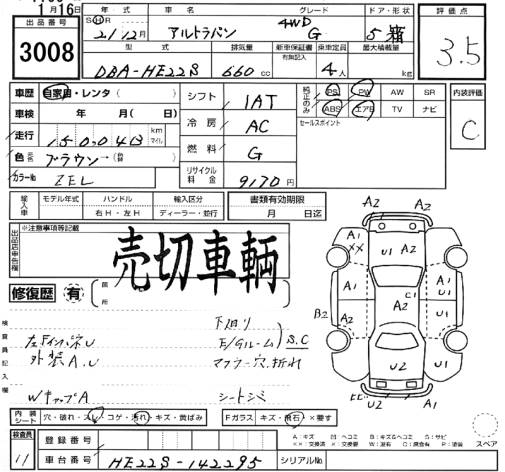 1月16日
出品番号 3008
年式 SH 21年12月
車名 アルトラパン
グレード 4WD G
ドア・形状 5 箱
評価点 3.5
型式 DBA-HE22S
排気量 660 cc
新車保証書 有無記入
乗車定員 4人
最大積載量 kg
車歴 自家用・レンタ( )
車検 年 月( 日)
走行 150,043 km マイル
色 元色 ブラウン→(色替 )
カラーNo ZEL
シフト 1AT
冷房 AC
燃料 G
リサイクル料金 9170 円
純正のみ PS PW AW SR
ABS エアB TV ナビ
セールスポイント
内装評価 C
輸入車 モデル年式 ハンドル 右H・左H 輸入区分 ディーラー・並行
書類有効期限 月 日迄
出品店申告欄 ※注意事項等記載
売切車輌
修復歴 有 箇所
検査員記入欄
下廻り
左Fインパネ U
E/Gルーム S.C
外装 A.U
マフラー穴.折れ
WキャップA
シートシミ
A2
A1 A1
XX U1 X
A2 C1 A1
U1
B2 A2 A2
U2 U2
U2 A2
内装シート 穴・破れ・スレ コゲ・汚れ キズ・黄ばみ
Fガラス キズ・飛石 ×要す
A:キズ U:ヘコミ B:キズ&ヘコミ S:サビ
××:交換済 ×:要交換 W:波有 C:腐食有 P:塗装
スペア
検査員 11
登録番号
車台番号 HE22S-142295
シリアルNo